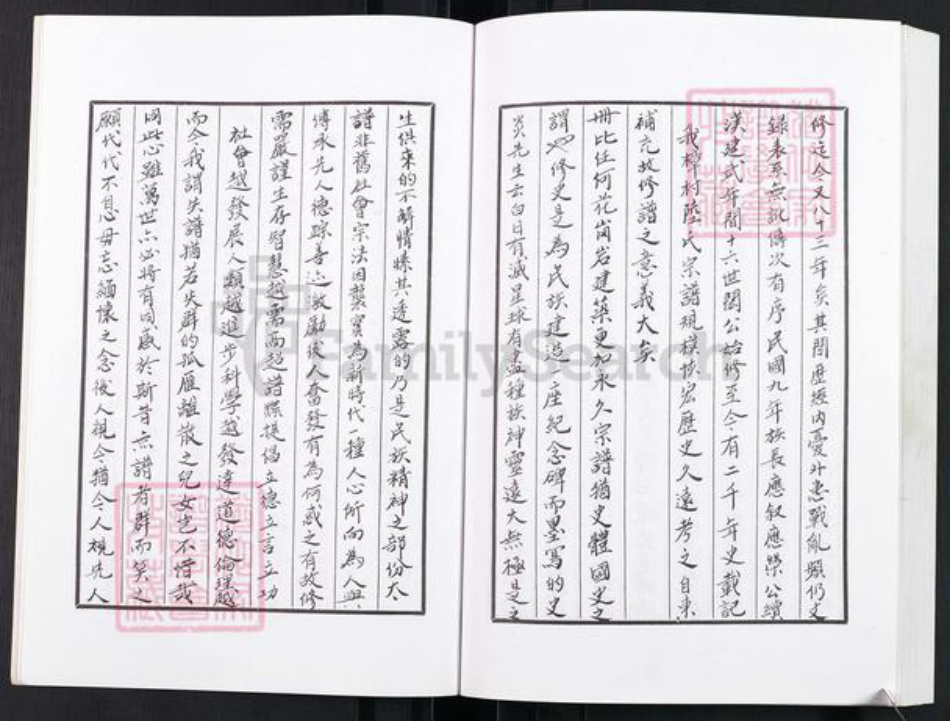 修迄今又八十三年矣其間歷經內憂外患戰亂頻仍史
錄表系無訛傳次有序民國九年族長應叙應榮公續
漢建武年間十六世閎公始修至今有二千年史載記
我樟村陸氏宗譜規模恢宏歷史久遠考之自東
補充故修譜之意義大矣
冊比任何花崗岩建築更加永久宗譜猶史體國史之
謂也修史是為民族建造一座紀念碑而墨寫的史
炎先生云白日有滅星球有盡種族神靈遠大無極是之
生俱來的不解情愫其透露的乃是民族精神之部份太
譜非舊社會宗法因襲實為新時代一種人心所向為人與
傳承先人德踪善迹激勵後人奮發有為何感之有故修
需嚴謹生存智慧越需高超譜牒提倡立德立言立功
社會越發展人類越進步科學越發達道德倫理越
而今我謂失譜猶若失群的孤雁離散之兒女豈不惜哉
同此心雖萬世亦必將有同感於斯昔無譜者群而笑之
願代代不息毋忘緬懷之念後人視今猶今人視先人
FamilySearch